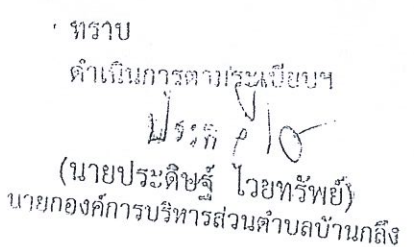 ทราบ
ดำเนินการตามระเบียบฯ
(นายประดิษฐ์ ไวยทรัพย์)
นายกองค์การบริหารส่วนตำบลบ้านกลึง